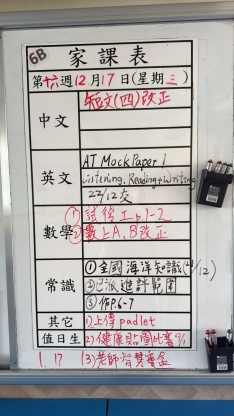 6B
家課表
第十六週12月17日(星期三)
中文
短文(四)改正
英文
AT Mock Paper 1
Listening, Reading+Writing
22/12交
數學
①試後工 p.1-2
②數上A,B改正
常識
①全國海洋知識(/12)
②已派進評範圍
③作P.6-7
其它
1)上傳padlet
值日生
2)健康貼圖比賽
1. 17
(3)老師智慧寶盒